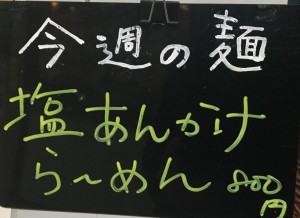 今週の麺
塩あんかけ
ら〜めん 800円